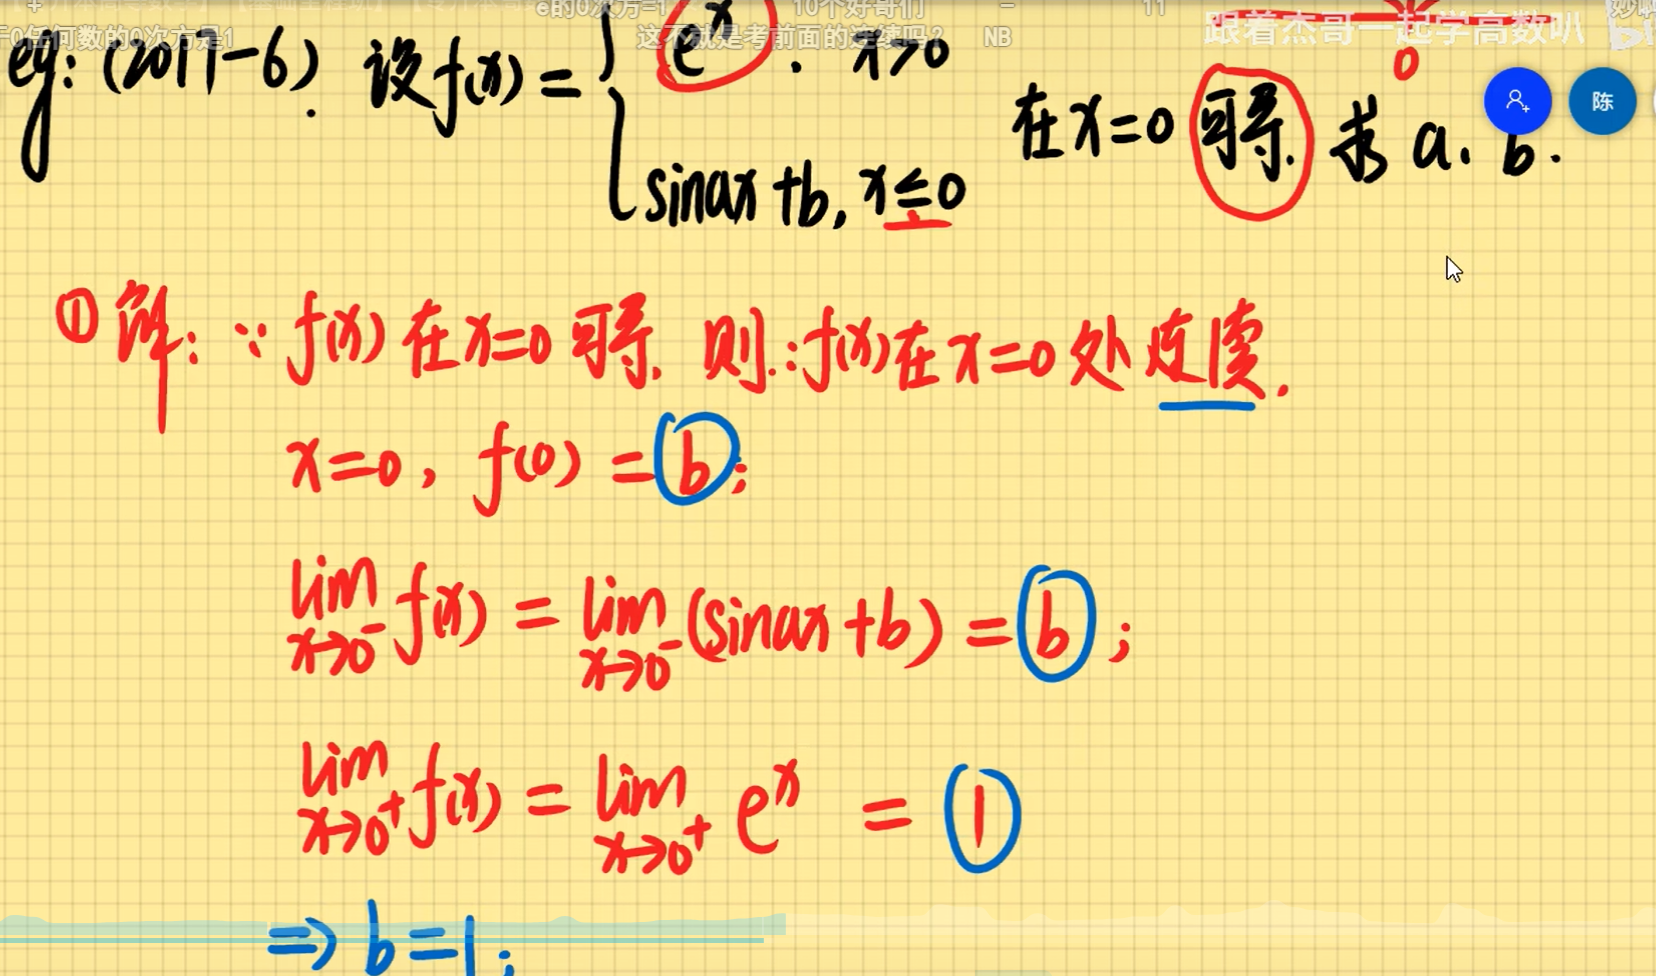 + e的0次方=1 10个好哥们 - 11
任何数的0次方是1 这不就是考前面的连续吗? NB 跟着杰哥一起学高数叭
eg: (2017-6). 设f(x) = { e^x . x>0
0
陈
在x=0 可导. 求 a. b.
sinax+b, x≤0
① 解: ∵ f(x) 在x=0 可导. 则∴f(x)在x=0处连续.
x=0, f(0) = b;
lim x→0⁻ f(x) = lim x→0⁻ (sinax+b) = b ;
lim x→0⁺ f(x) = lim x→0⁺ e^x = 1
⇒ b=1;